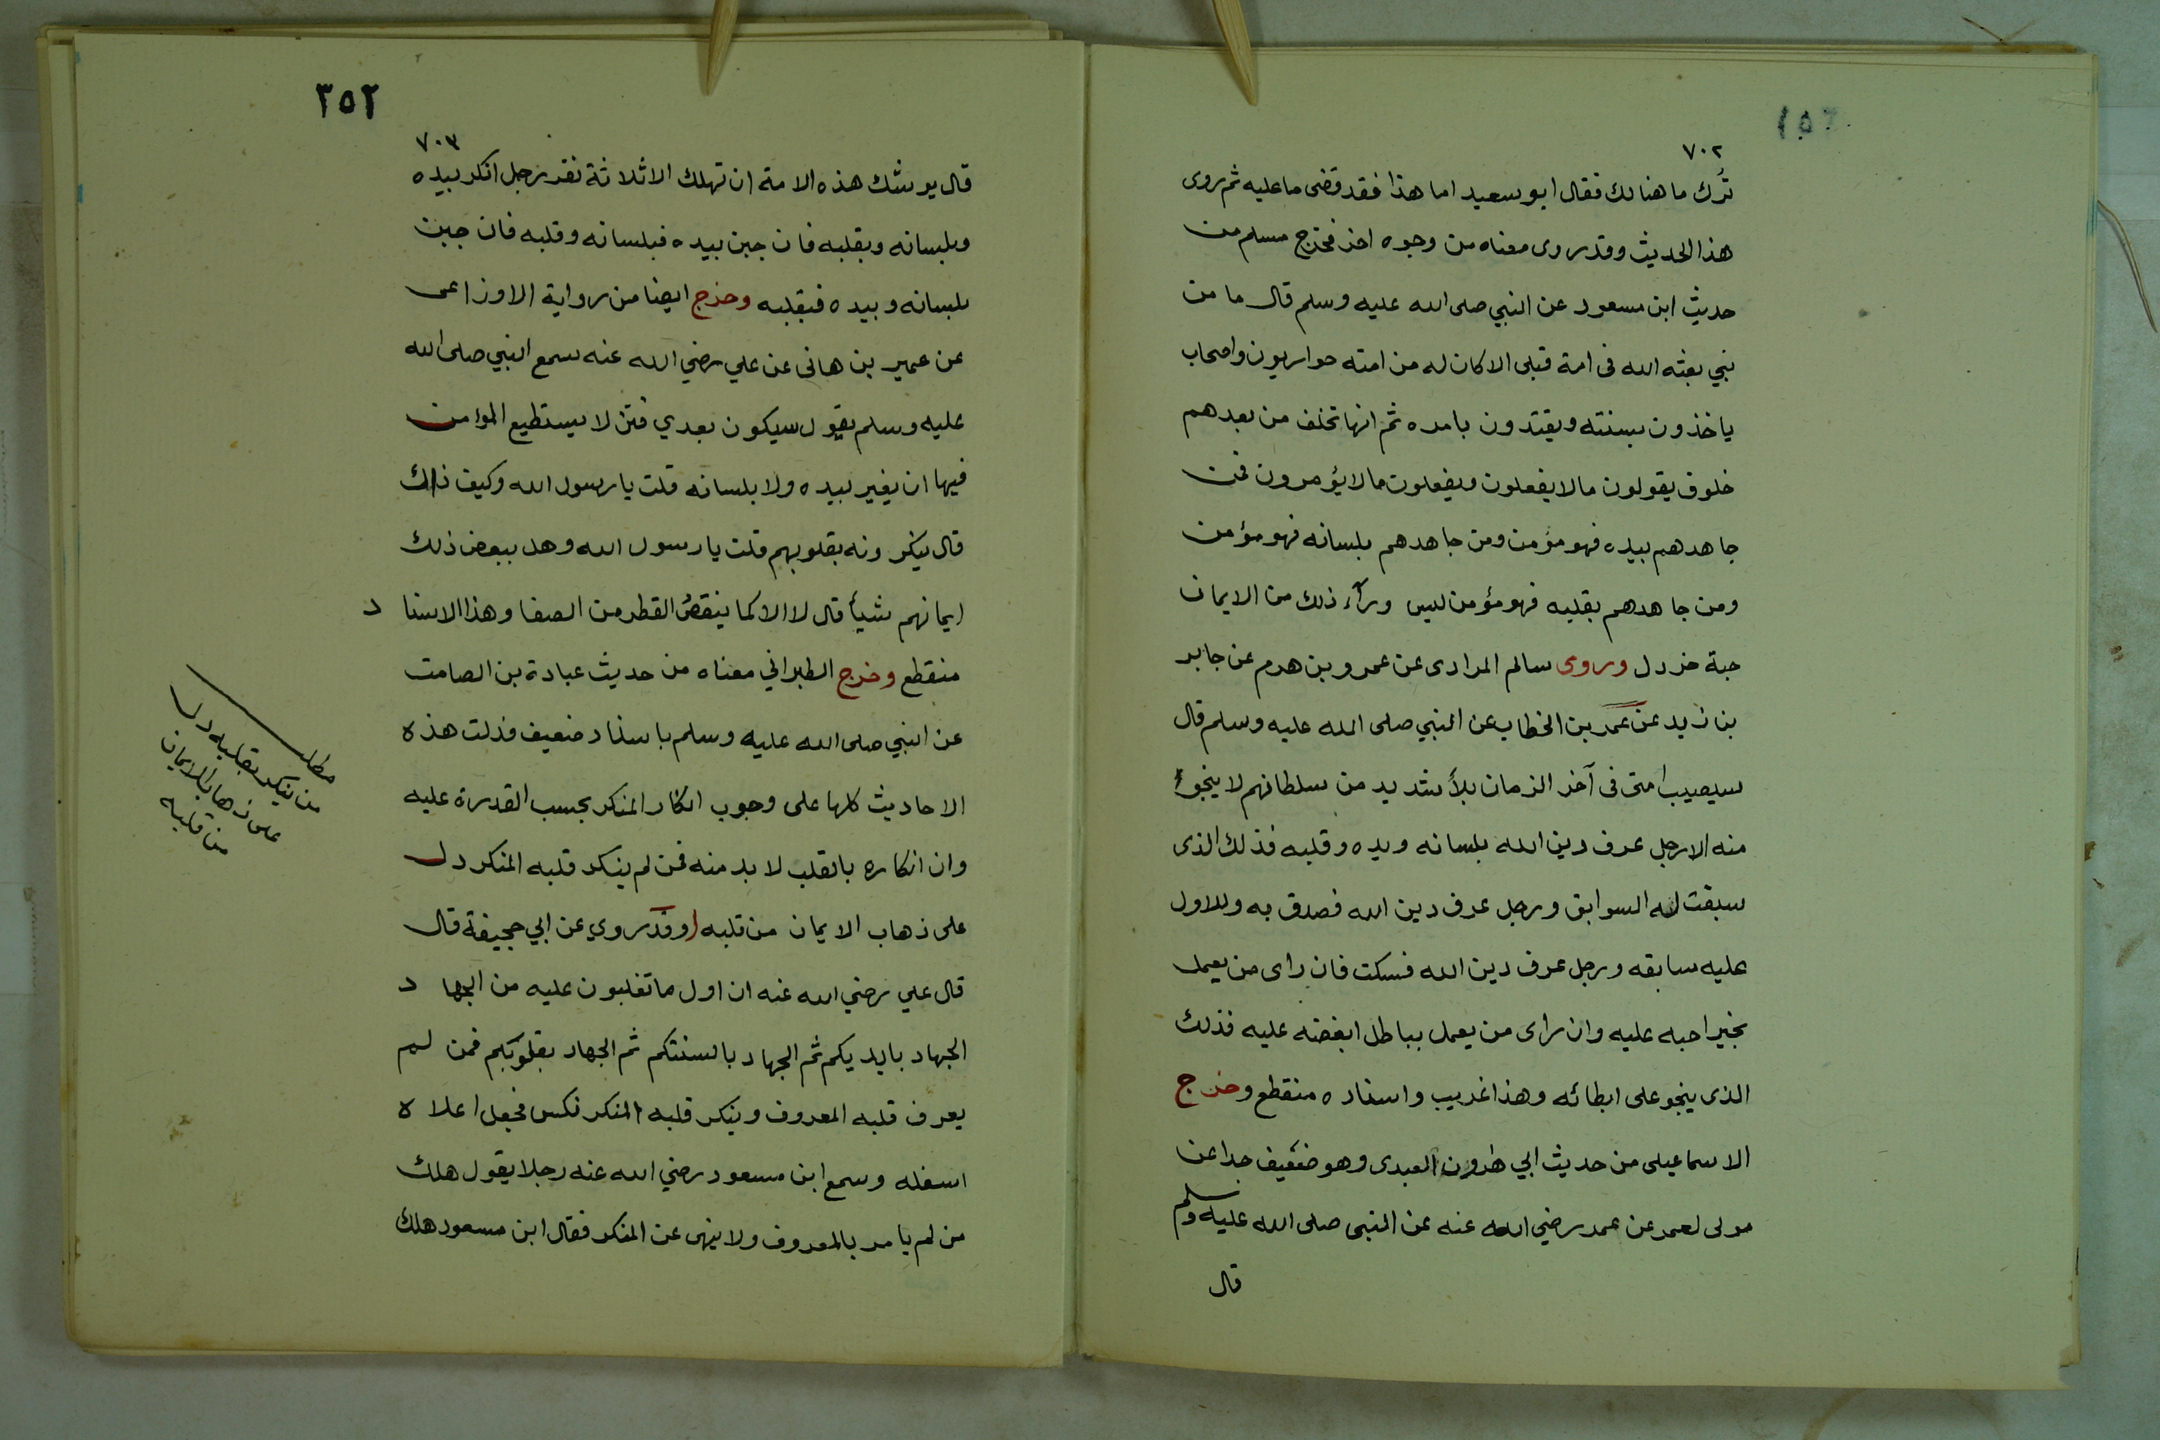 ٧٠٢
تُرك ما هنالك فقال ابو سعيد اما هذا فقد قضى ما عليه ثم روى
هذا الحديث وقد روى معناه من وجوه اخر فخرج مسلم من
حديث ابن مسعود عن النبي صلى الله عليه وسلم قال ما من
نبي بعثه الله فى امة قبلى الا كان له من امته حواريون واصحاب
ياخذون بسنته ويقتدون بامره ثم انها تخلف من بعدهم
خلوف يقولون ما لا يفعلون ويفعلون ما لا يؤمرون فمن
جاهدهم بيده فهو مؤمن ومن جاهدهم بلسانه فهو مؤمن
ومن جاهدهم بقلبه فهو مؤمن ليس ورآء ذلك من الايمان
حبة خردل وروى سالم المرادى عن عمرو بن هرم عن جابر
بن زيد عن عمر بن الخطاب عن النبي صلى الله عليه وسلم قال
سيصيب امتى فى آخر الزمان بلأ شديد من سلطانهم لا ينجوء
منه الا رجل عرف دين الله بلسانه ويده وقلبه فذلك الذى
سبقت له السوابق ورجل عرف دين الله فصدق به وللاول
عليه سابقه ورجل عرف دين الله فسكت فان راى من يعمل
بخير احبه عليه وان راى من يعمل بباطل ابغضه عليه فذلك
الذى ينجو على ابطائه وهذا غريب واسناده منقطع وخرج
الاسماعيلى من حديث ابي هارون العبدى وهو ضعيف جدا عن
مولى لعمر عن عمر رضي الله عنه عن النبى صلى الله عليه وسلم
قال
٣٥٢
٧٠٣
قال يوشك هذه الامة ان تهلك الا ثلاثة نفر رجل انكر بيده
وبلسانه وبقلبه فان جبن بيده فبلسانه وقلبه فان جبن
بلسانه وبيده فبقلبه وخرج ايضا من رواية الاوزاعى
عن عمير بن هانى عن علي رضي الله عنه سمع النبي صلى الله
عليه وسلم يقول سيكون بعدي فتن لا يستطيع المؤمن
فيها ان يغير بيده ولا بلسانه قلت يا رسول الله وكيف ذاك
قال ينكرونه بقلوبهم قلت يا رسول الله وهل ينقص ذلك
ايمانهم شيأ قال لا الا كما ينقص القطر من الصفا وهذا الاسناد
منقطع وخرج الطبراني معناه من حديث عبادة بن الصامت
عن النبي صلى الله عليه وسلم باسناد ضعيف فدلت هذه
الاحاديث كلها على وجوب انكار المنكر بحسب القدرة عليه
وان انكاره بالقلب لا بد منه فمن لم ينكر قلبه المنكر دل
على ذهاب الايمان من قلبه وقد روي عن ابي جحيفة قال
قال علي رضي الله عنه ان اول ما تغلبون عليه من الجهاد
الجهاد بايديكم ثم الجهاد بالسنتكم ثم الجهاد بقلوبكم فمن لم
يعرف قلبه المعروف وينكر قلبه المنكر نكس فجعل اعلاه
اسفله وسمع ابن مسعود رضي الله عنه رجلا يقول هلك
من لم يامر بالمعروف ولا ينهى عن المنكر فقال ابن مسعود هلك
مطلب
من ينكر بقلبه دل
على ذهاب الايمان
من قلبه